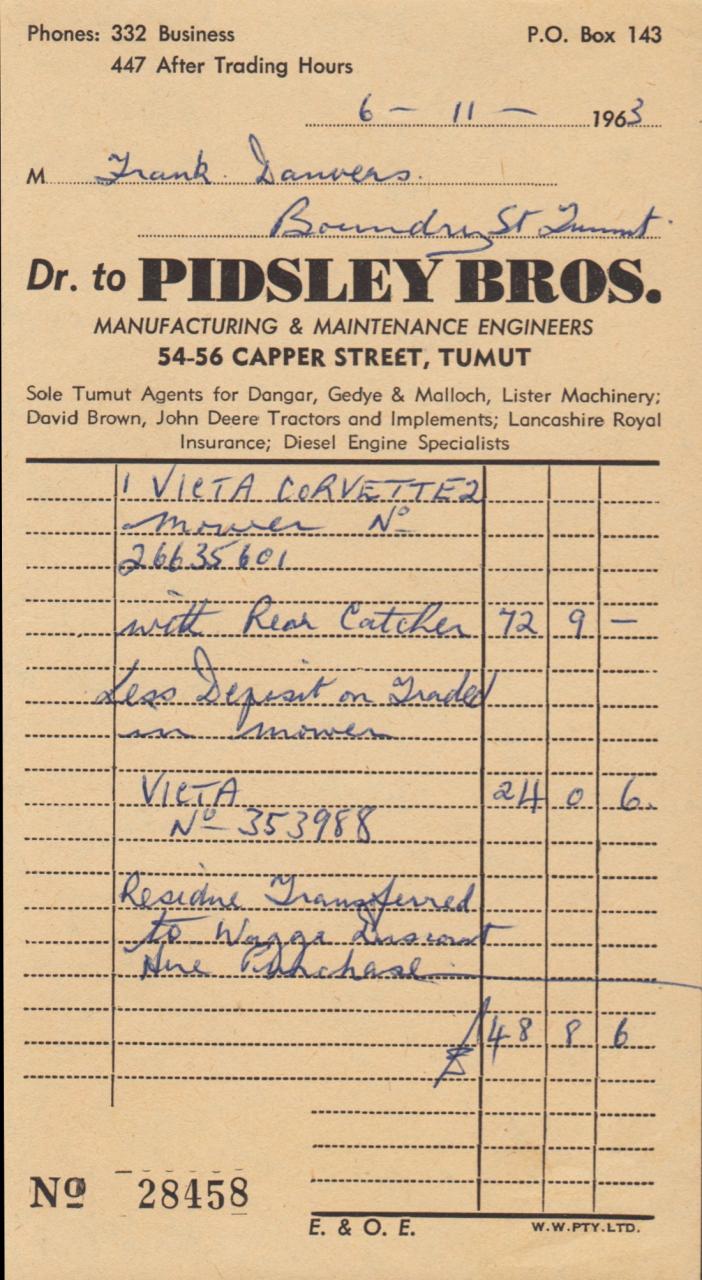 Phones: 332 Business P.O. Box 143
447 After Trading Hours
6 – 11 – 1963
M Frank Danvers.
Boundry St Tumut.
Dr. to PIDSLEY BROS.
MANUFACTURING & MAINTENANCE ENGINEERS
54-56 CAPPER STREET, TUMUT
Sole Tumut Agents for Dangar, Gedye & Malloch, Lister Machinery;
David Brown, John Deere Tractors and Implements; Lancashire Royal
Insurance; Diesel Engine Specialists
1 VICTA CORVETTE 2
Mower No
26635601
with Rear Catcher 72 9 –
Less Deposit on Traded
in Mower
VICTA 24 0 6.
No 353988
Residue Transferred
to Wagga Discount
Hire Purchase
£ 48 8 6
No 28458
E. & O. E. W.W.PTY.LTD.